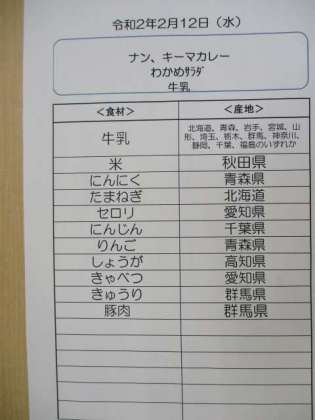 令和2年2月12日（水）
ナン、キーマカレー
わかめｻﾗﾀﾞ
牛乳
＜食材＞ ＜産地＞
牛乳 北海道、青森、岩手、宮城、山形、埼玉、栃木、群馬、神奈川、静岡、千葉、福島のいずれか
米 秋田県
にんにく 青森県
たまねぎ 北海道
セロリ 愛知県
にんじん 千葉県
りんご 青森県
しょうが 高知県
きゃべつ 愛知県
きゅうり 群馬県
豚肉 群馬県